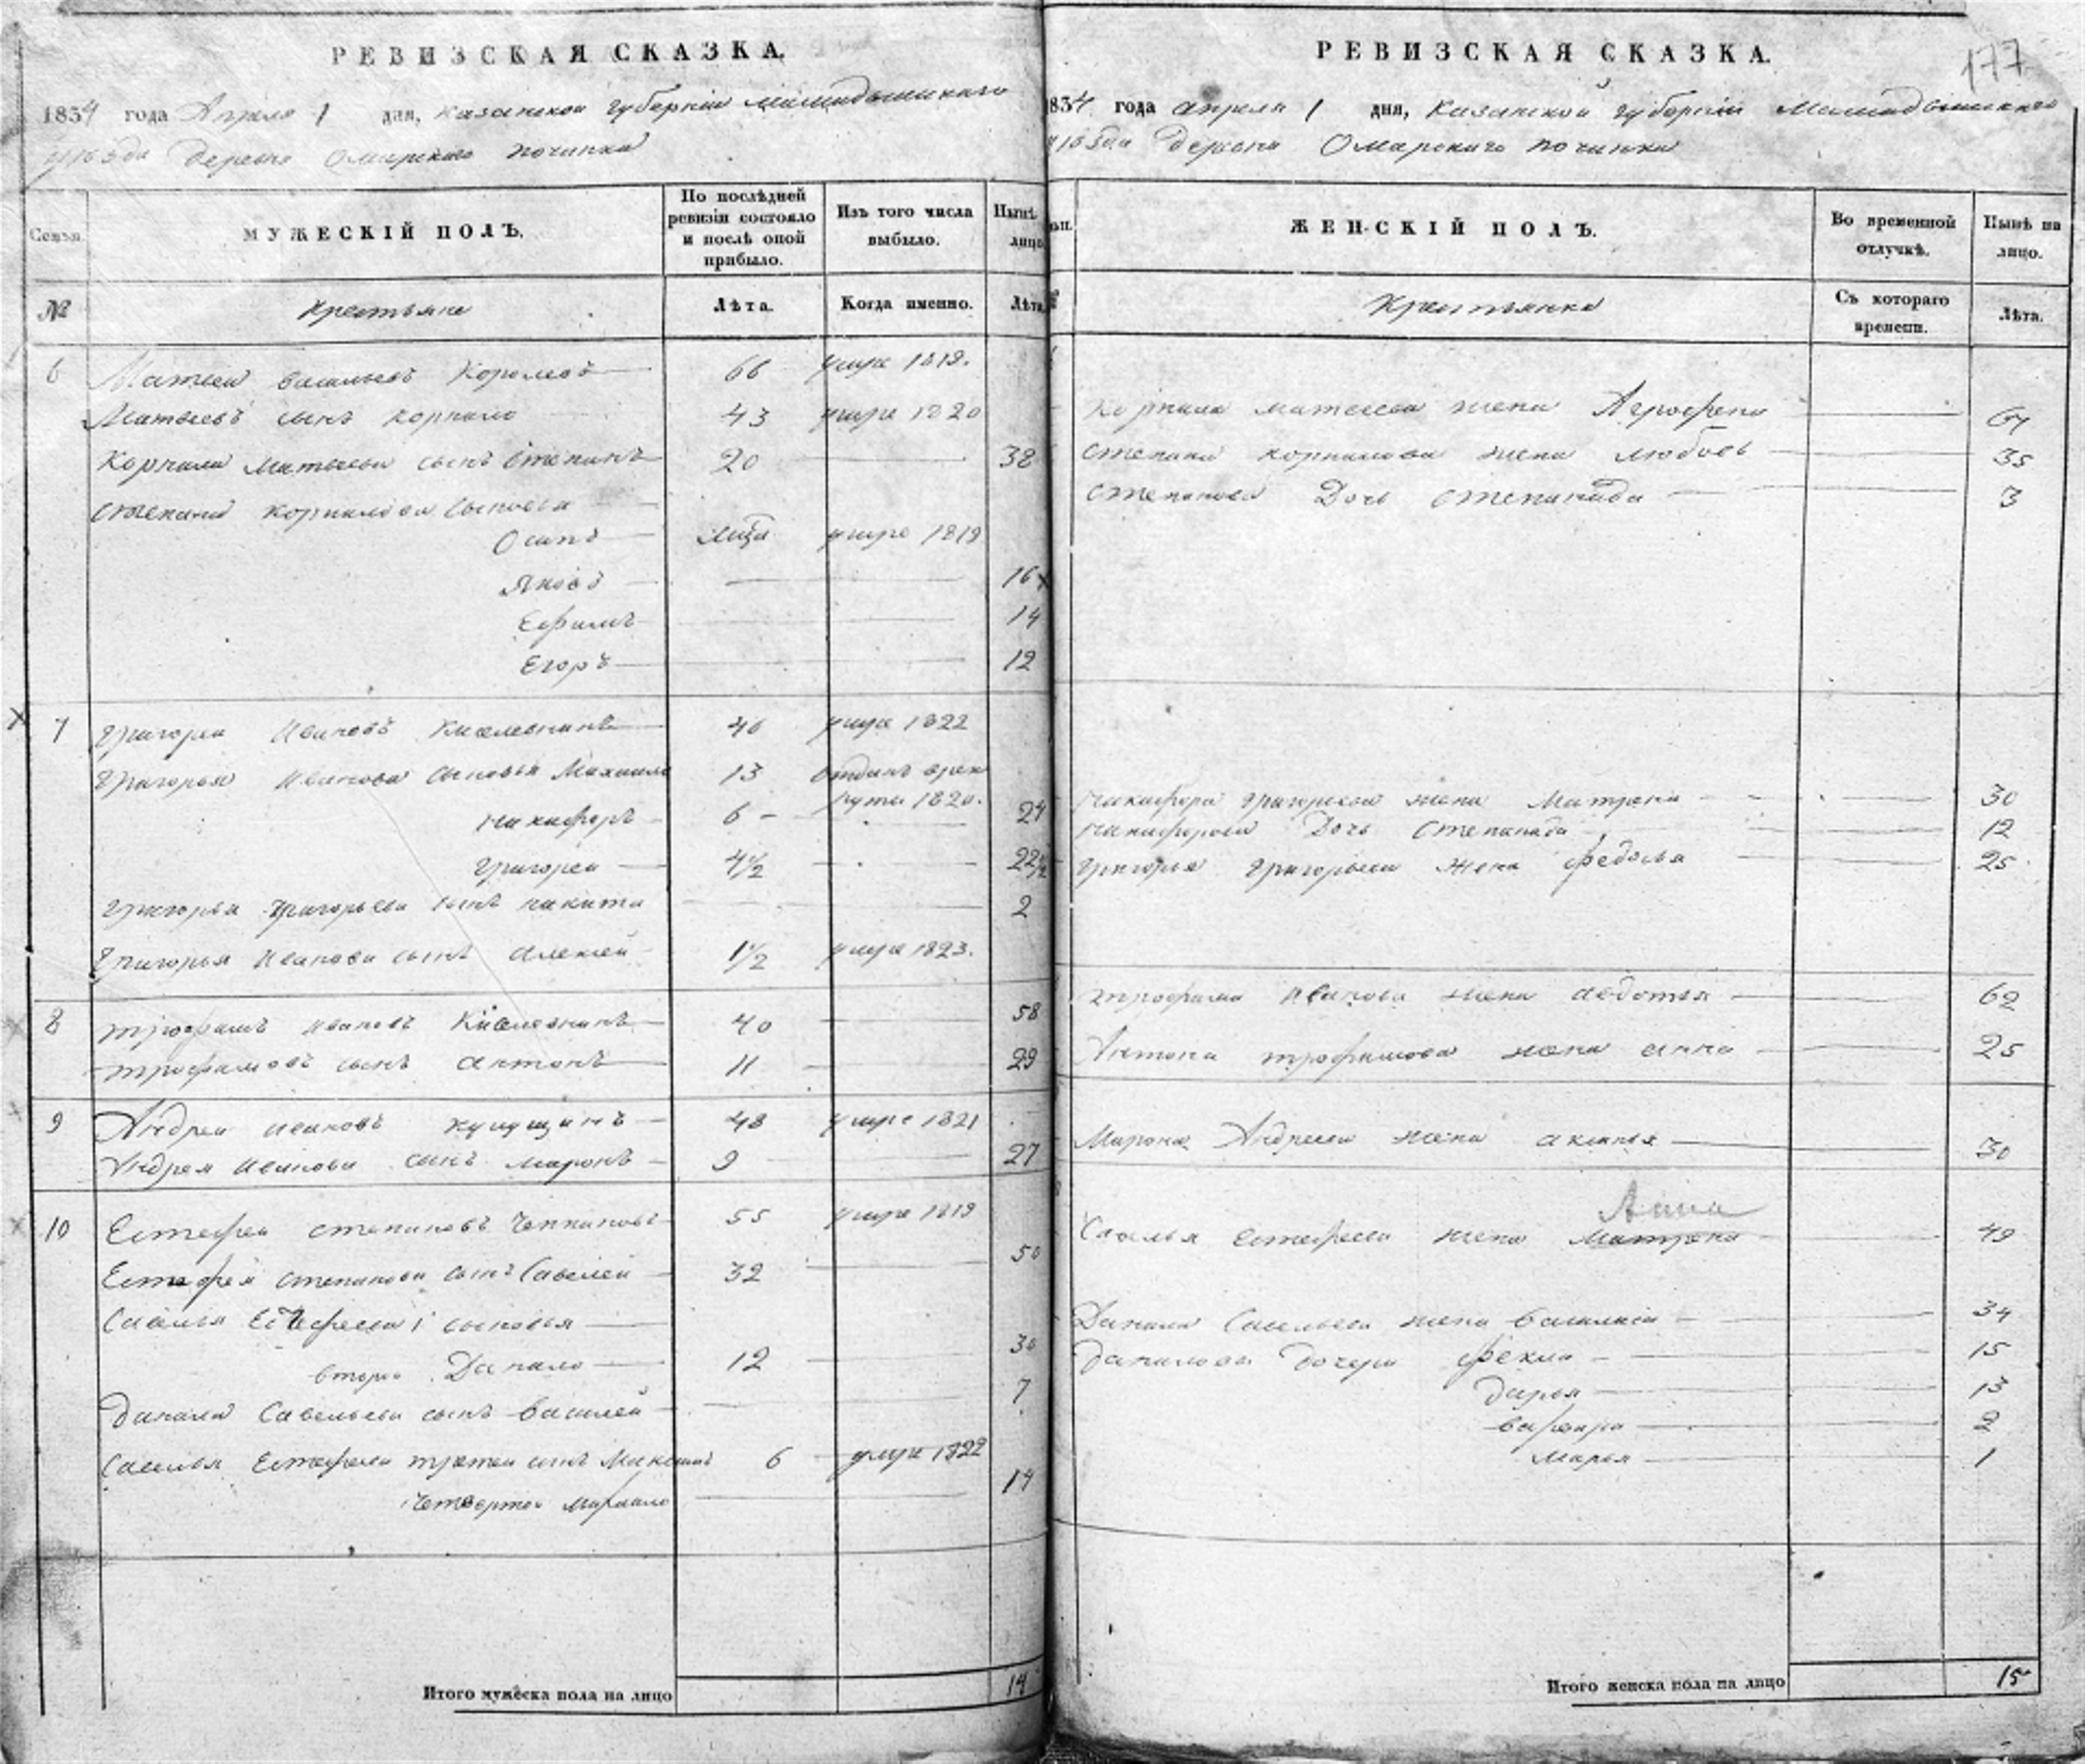 РЕВИЗСКАЯ СКАЗКА.
1834 года Апреля 1 дня, Казанской губернии Мамадышскаго
уѣзда деревни Омарскаго починка
Семьи.
МУЖЕСКІЙ ПОЛЪ.
По послѣдней ревизіи состояло и послѣ оной прибыло.
Изъ того числа выбыло.
Нынѣ лицо
№ Крестьяне Лѣта. Когда именно. Лѣта
6 Матвеи Васильевъ Королевъ 66 умре 1819.
Матвеевъ сынъ Корнило 43 умре 1820
Корнила Матвеева сынъ Степанъ 20 38
Степана Корнилова сыновья
Осипъ умре 1819
Яковъ 16
Ефимъ 14
Егоръ 12
7 Григореи Ивановъ 46 умре 1822
Григорья Иванова сыновья Михаило 13 отданъ врек
руты 1820.
Никифоръ 6 24
Григореи 4½ 22½
Григорья Григорьева сынъ Никита 2
Григорья Иванова сынъ Алексей 1½ умре 1823.
8 Трофимъ Ивановъ 40 58
Трофимовъ сынъ Антонъ 11 29
9 Андреи Ивановъ 48 умре 1821
Андрея Иванова сынъ Миронъ 9 27
10 Естефеи Степановъ 55 умре 1819
Естефея Степанова сынъ Савелеи 32 50
Савелья Естефеева 1 сыновья
второ Данило 12 30
Данила Савельева сынъ Василей 7
Савелья Естефеева третеи сынъ Максимъ 6 умре 1822
Четвертои 14
Итого мужеска пола на лицо 14
РЕВИЗСКАЯ СКАЗКА.
177
1834 года апреля 1 дня, Казанской губерніи Мамадышскаго
уѣзда деревни Омарскаго починка
ЖЕНСКІЙ ПОЛЪ.
Во временной отлучкѣ.
Нынѣ на лицо.
Крестьянка Съ котораго времени. Лѣта.
Корнила Матвеева жена Агрофена 64
Степана Корнилова жена Любовь 35
Степанова Дочь Степанида 3
Никифора Григорьева жена Матрена 30
Никифорова Дочь Степанида 12
Григорья Григорьева жена Федосья 25
Трофима Иванова жена Авдотья 62
Антона Трофимова жена Анна 25
Мирона Андреева жена Аксинья 30
Анна
Савелья Естефеева жена Матрена 49
Данила Савельева жена Василиса 34
Данилова дочери Фекла 15
Дарья 13
Варвара 2
Марья 1
Итого женска пола на лицо 15